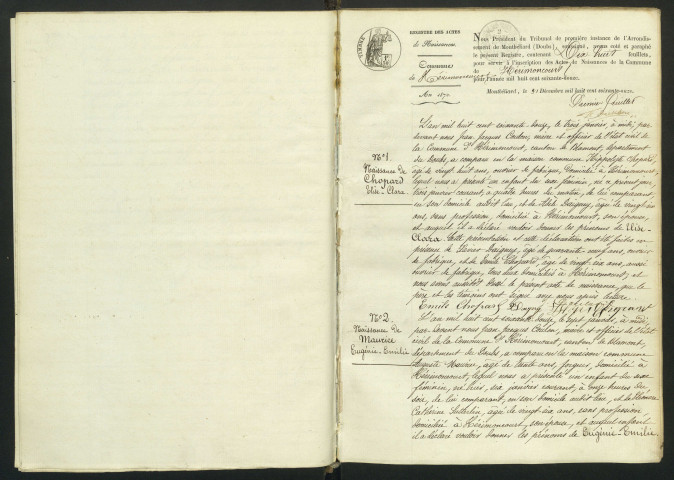 REGISTRE DES ACTES
de Naissances
Commune
de Hérimoncourt
An 1872
TIMBRE
Nous Président du Tribunal de première instance de l'Arrondis-
sement de Montbéliard (Doubs), soussigné, avons coté et paraphé
le présent Registre, contenant Dix huit feuillets,
pour servir à l'inscription des Actes de Naissances de la Commune
de Hérimoncourt
pour l'année mil huit cent soixante-douze.
Montbéliard, le 21 Décembre mil huit cent soixante-onze.
N°1.
Naissance De
Chopard
Elise-Clara
L'an mil huit cent soixante-douze, le trois janvier, à midi, par
devant nous Jean-Jacques Coulon, maire et officier de l'état civil de
la Commune d'Hérimoncourt, canton de Blamont, département
du Doubs, a comparu en la maison commune Hippolyte Chopard,
âgé de vingt huit ans, ouvrier de fabrique, domicilié à Hérimoncourt,
lequel nous a présenté un enfant du sexe féminin, né à présent jour
trois janvier courant, à quatre heures du matin, de lui comparant
en son domicile audit lieu, et de Duvigny, âgée de vingt
ans, sans profession, domiciliée à Hérimoncourt, son épouse,
et auquel il a déclaré vouloir donner les prénoms de Elise-
Clara. Cette présentation et cette déclaration ont été faites en
présence de âgé de quarante ans, ouvrier
de fabrique, et de Emile Chopard, âgé de vingt-six ans, aussi
ouvrier de fabrique, tous deux domiciliés à Hérimoncourt, et
nous avons aussitôt dressé le présent acte de naissance, que le
père et les témoins ont signé avec nous après lecture.
Emile Chopard
N°2.
Naissance De
Maurice
Eugénie-Emilie
L'an mil huit cent soixante-douze, le sept janvier, à midi,
par-devant nous Jean-Jacques Coulon, maire et officier de l'état
civil de la Commune d'Hérimoncourt, canton de Blamont,
département du Doubs, a comparu en la maison commune
Auguste Maurice, âgé de trente ans, forgeur, domicilié à
Hérimoncourt, lequel nous a présenté un enfant du sexe
féminin, né hier, six janvier courant, à onze heures du
soir, de lui comparant, en son domicile audit lieu, et de
Catherine âgée de vingt-six ans, sans profession
domiciliée à Hérimoncourt, son épouse, et auquel enfant
il a déclaré vouloir donner les prénoms de Eugénie-Emilie.